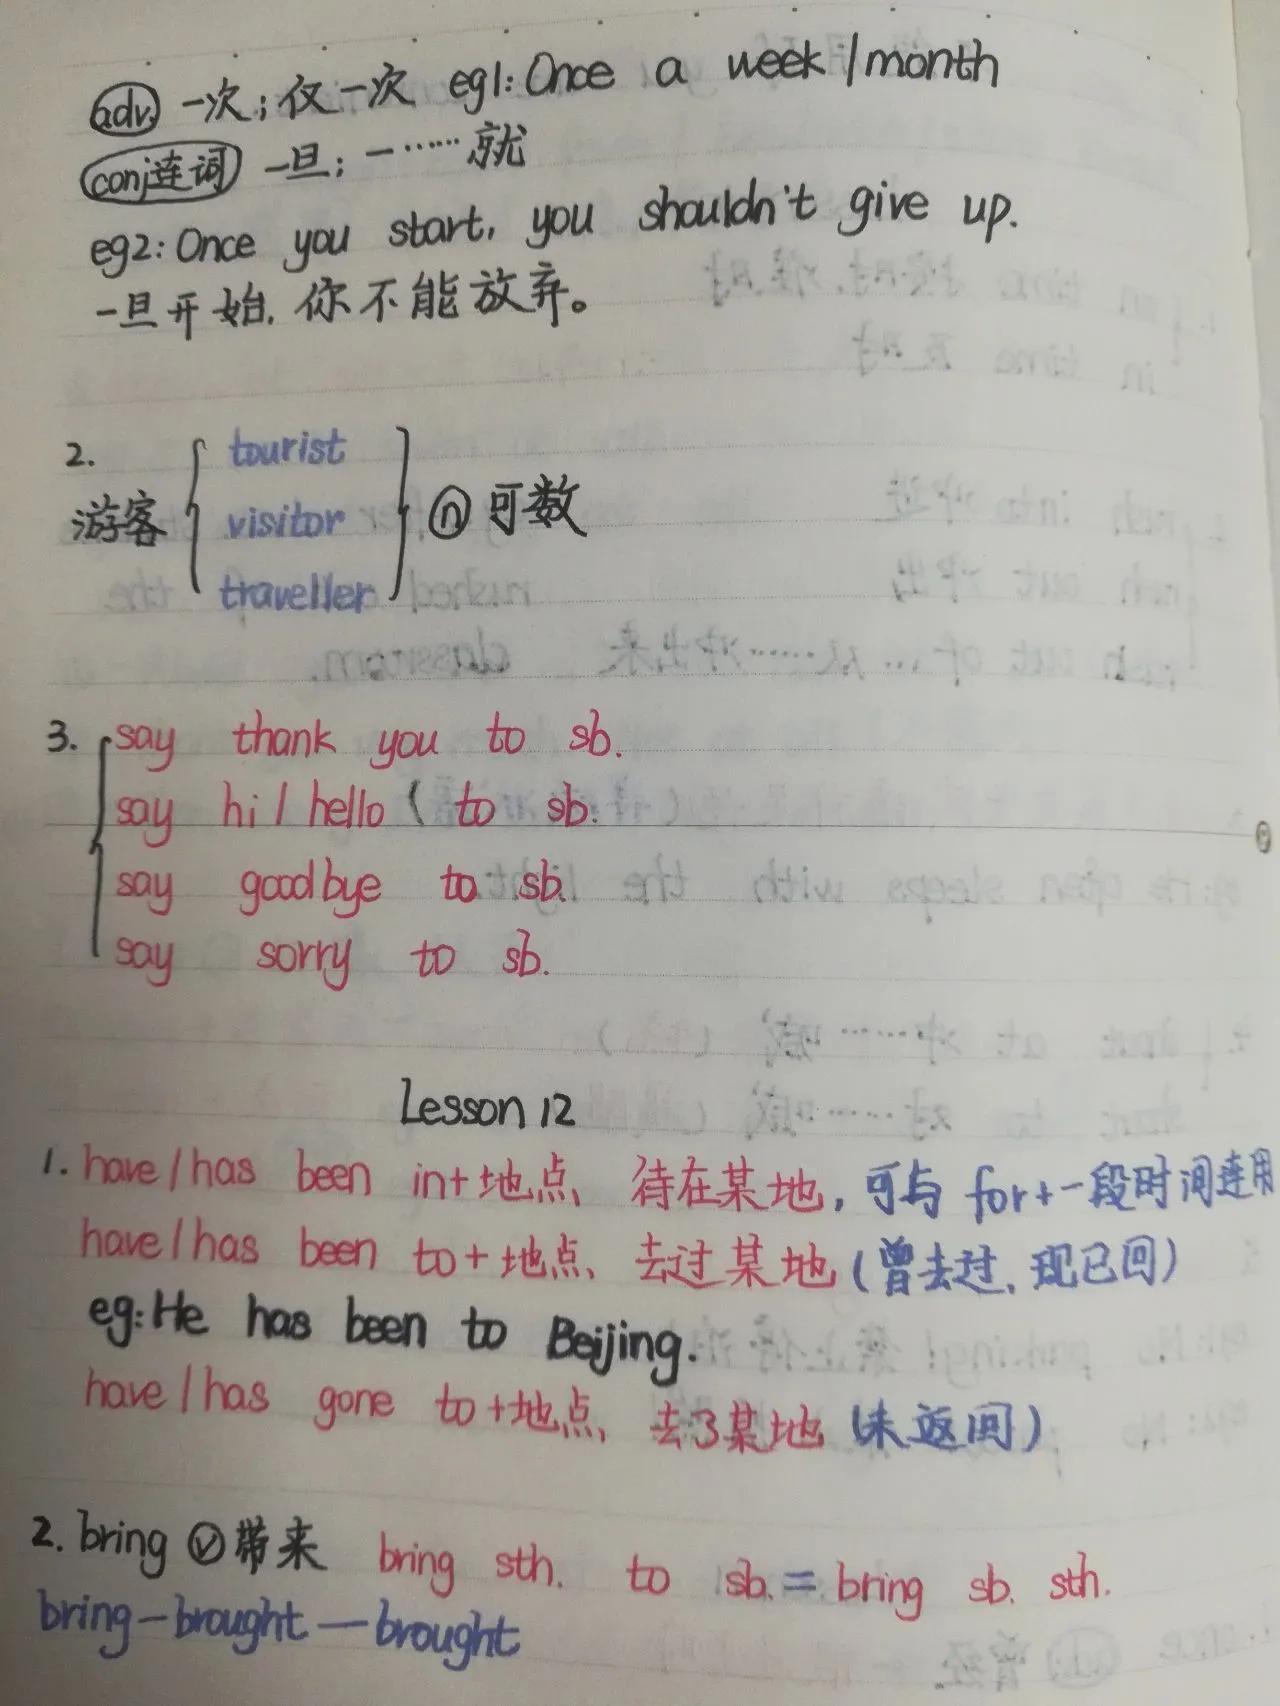 adv. 一次；仅一次 eg1: Once a week / month
conj连词 一旦；一……就
eg2: Once you start, you shouldn't give up.
一旦开始, 你不能放弃。
2.
游客 { tourist
visitor
traveller } n 可数
3. say thank you to sb.
say hi / hello ( to sb.
say goodbye to sb.
say sorry to sb.
Lesson 12
1. have / has been in + 地点、待在某地, 可与 for + 一段时间连用
have / has been to + 地点、去过某地 (曾去过, 现已回)
eg: He has been to Beijing.
have / has gone to + 地点、去了某地 (未返回)
2. bring v 带来 bring sth. to sb. = bring sb. sth.
bring — brought — brought